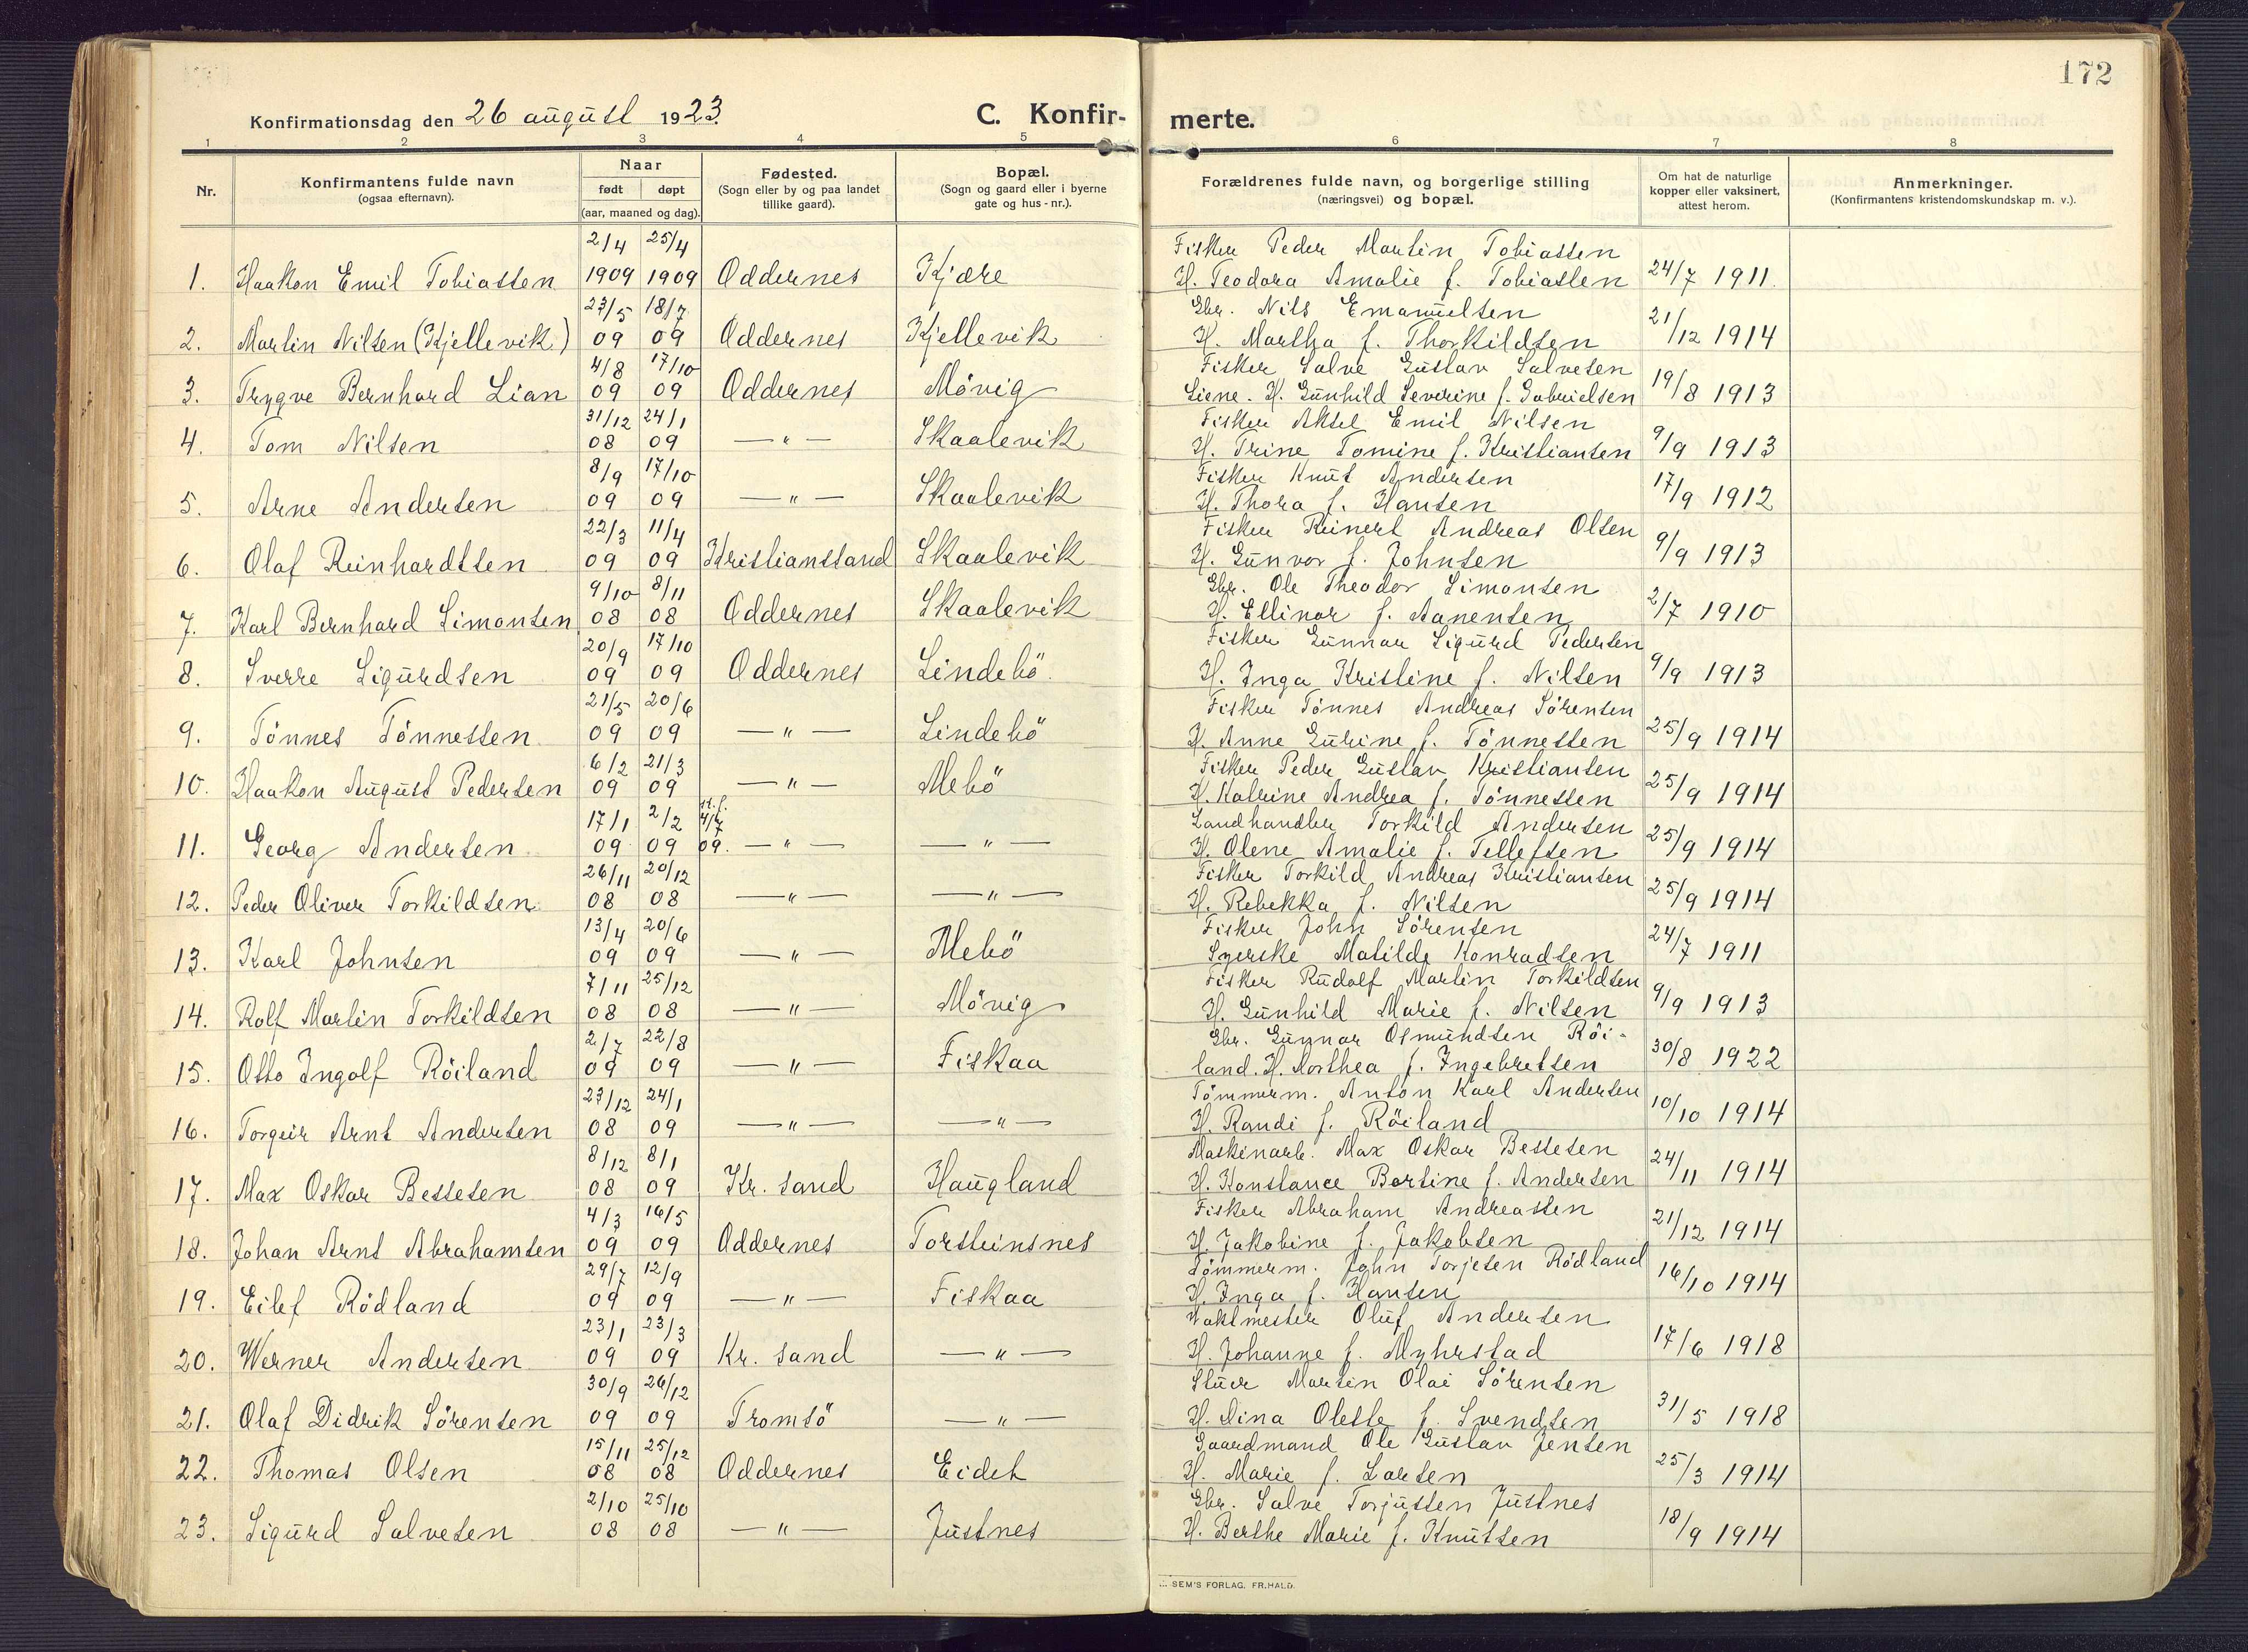 172
Konfirmationsdag den 26 august 1923.
C. Konfir-
merte.
1 2 3 4 5 6 7 8
Nr.
Konfirmantens fulde navn
(ogsaa efternavn).
Naar
født døpt
(aar, maaned og dag).
Fødested.
(Sogn eller by og paa landet
tillike gaard).
Bopæl.
(Sogn og gaard eller i byerne
gate og hus-nr.).
Forældrenes fulde navn, og borgerlige stilling
(næringsvei) og bopæl.
Om hat de naturlige
kopper eller vaksinert,
attest herom.
Anmerkninger.
(Konfirmantens kristendomskundskap m. v.).
2/4 25/4 Fisker Peder Martin Tobiassen
1. Haakon Emil Tobiassen 1909 1909 Oddernes Kjære H. Teodora Amalie f. Tobiassen 24/7 1911.
23/5 18/7 Gbr. Nils Emanuelsen
2. Martin Nilsen (Kjellevik) 09 09 Oddernes Kjellevik H. Martha f. Thorkildsen 21/12 1914
4/8 17/10 Fisker Salve Gustav Salvesen
3. Trygve Bernhard Lian 09 09 Oddernes Mövig Liene. H. Gunhild Severine f. Gabrielsen 19/8 1913
31/12 24/1 Fisker Aksel Emil Nilsen
4. Tom Nilsen 08 09 — " — Skaalevik H. Trine Tomine f. Kristiansen 9/9 1913
8/9 17/10 Fisker Knut Andersen
5. Arne Andersen 09 09 — " — Skaalevik H. Thora f. Hansen 17/9 1912
22/3 11/4 Fisker Reinert Andreas Olsen
6. Olaf Reinhardtsen 09 09 Kristianssand Skaalevik H. Gunvor f. Johnsen 9/9 1913
9/10 8/11 Gbr. Ole Theodor Simonsen
7. Karl Bernhard Simonsen 08 08 Oddernes Skaalevik H. Ellinor f. Aanensen 2/7 1910
20/9 17/10 Fisker Gunnar Sigurd Pedersen
8. Sverre Sigurdsen 09 09 Oddernes Lindebö. H. Inga Kristine f. Nilsen 9/9 1913
21/5 20/6 Fisker Tönnes Andreas Sörensen
9. Tönnes Tönnessen 09 09 — " — Lindebö H. Anne Gurine f. Tönnessen 25/9 1914
6/2 21/3 Fisker Peder Gustav Kristiansen
10. Haakon August Pedersen 09 09 — " — Mebö H. Katrine Andrea f. Tönnessen 25/9 1914
17/1 2/2 st. f. 4/7 Landhandler Torkild Andersen
11. Georg Andersen 09 09 09. — " — — " — H. Olene Amalie f. Tellefsen 25/9 1914
26/11 20/12 Fisker Torkild Andreas Kristiansen
12. Peder Oliver Torkildsen 08 08 — " — — " — H. Rebekka f. Nilsen 25/9 1914
13/4 20/6 Fisker John Sörensen
13. Karl Johnsen 09 09 — " — Mebö Syerske Matilde Konradsen 24/7 1911
7/11 25/12 Fisker Rudolf Martin Torkildsen
14. Rolf Martin Torkildsen 08 08 — " — Mövig H. Gunhild Marie f. Nilsen 9/9 1913
2/7 22/8 Gbr. Gunnar Osmundsen Röi-
15. Otto Ingolf Röiland 09 09 — " — Fiskaa land. H. Dorthea f. Ingebretsen 30/8 1922
23/12 24/1 Tömmerm. Anton Karl Andersen
16. Torgeir Arnt Andersen 08 09 — " — — " — H. Randi f. Röiland 10/10 1914
8/12 8/1 Maskinarb. Max Oskar Bessesen
17. Max Oskar Bessesen 08 09 Kr. sand Haugland H. Konstance Bertine f. Andersen 24/11 1914
4/3 16/5 Fisker Abraham Andreassen
18. Johan Arnt Abrahamsen 09 09 Oddernes Torsteinsnes H. Jakobine f. Jakobsen 21/12 1914
29/7 12/9 Tömmerm. John Torjesen Rödland
19. Eilef Rödland 09 09 — " — Fiskaa H. Inga f. Hansen 16/10 1914
23/1 23/3 Vaktmester Oluf Andersen
20. Werner Andersen 09 09 Kr. sand — " — H. Johanne f. Myhrstad 17/6 1918
30/9 26/12 Stuer Martin Olai Sörensen
21. Olaf Didrik Sörensen 09 09 Tromsö — " — H. Dina Olette f. Svendsen 31/5 1918
15/11 25/12 Gaardmand Ole Gustav Jensen
22. Thomas Olsen 08 08 Oddernes Eidet H. Marie f. Larsen 25/3 1914
2/10 25/10 Gbr. Salve Torjussen Justnes
23. Sigurd Salvesen 08 08 — " — Justnes H. Berthe Marie f. Knutsen 18/9 1914
SEM'S FORLAG, FR.HALD.